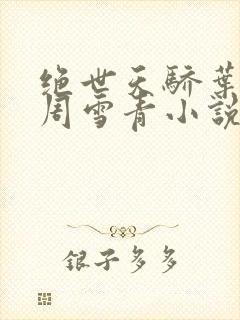 绝世天骄叶
周雪青小说
银子多多